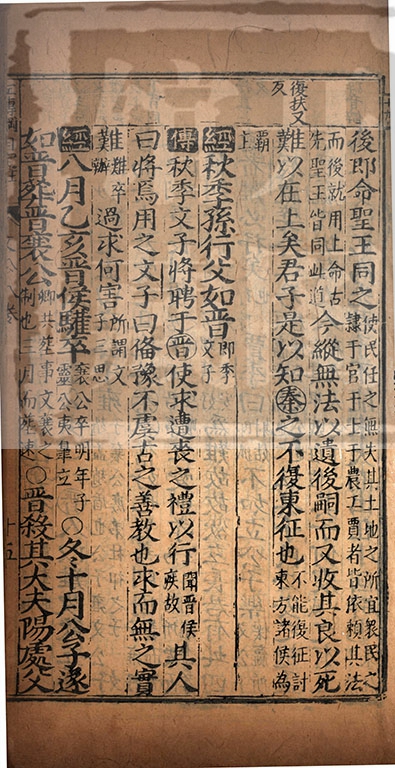 復扶又
反
後即命聖王同之使民任之無失其土地之所宜衆民之隸于官于士于農工賈者皆依賴其法
而後就用上命古先聖王皆同此道今縱無法以遺後嗣而又收其良以死
難以在上矣君子是以知秦之不復東征也不能復征討東方諸侯為
霸
經秋季孫行父如晉即季文子
傳秋季文子將聘于晉使求遭喪之禮以行聞晉侯疾故其人
曰將焉用之文子曰俻豫不虞古之善教也求而無之實
難難卒難辦過求何害所謂文子三思
經八月乙亥晉侯驩卒襄公卒明年子靈公夷皋立○冬十月公子遂
如晉葬晉襄公卿共葬事文襄之制也三月而葬速○晉殺其大夫陽處父
十五